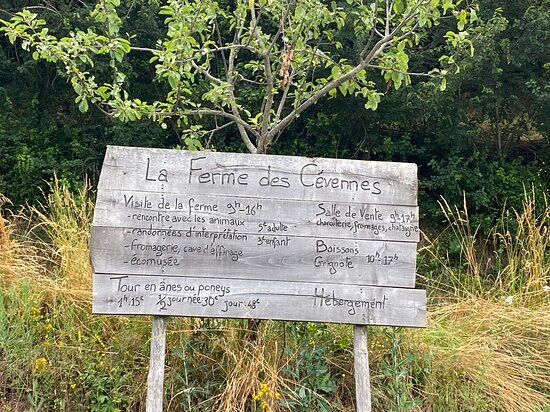 La Ferme des Cévennes
Visite de la ferme 9h-16h
- rencontre avec les animaux
- randonnées d'interprétation
5€ adulte
3€ enfant
- fromagerie, cave d'affinage
- écomusée
Salle de Vente 9h-17h
charcuterie, fromages, chataigne
Boissons
Grignote 10h-17h
Tour en ânes ou poneys
1h.15€ ½ journée 30€ jour.48€
Hébergement